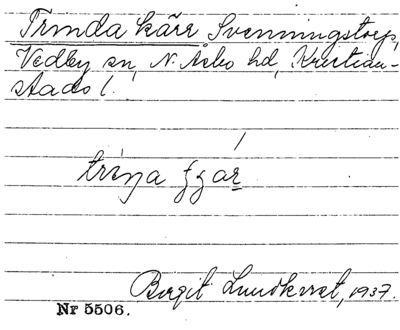 Trinda kärr Svenningstorp,
Vedby sn, N. Åsbo hd, Kristian-
stads l.
Birgit Lundkvist, 1937.
Nr 5506.